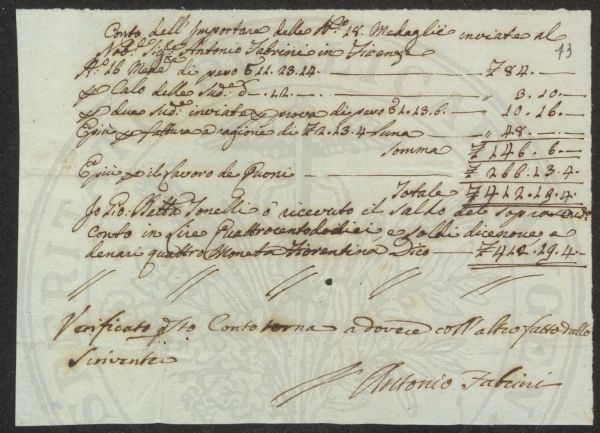 Conto dell' Importare delle N.o 18. Medaglie inviate al
Nob.e Sig.re Antonio Fabrini in Firenze
13
N.o 16 Meda.e di peso 11. 23. 14. — 84. —
p Calo delle Sud.e d — 12. — „ 3. 10. —
p due sud.e inviate p prova di peso 1. 13. 6. — „ 10. 16 —
E più p fattura a ragione di 2. 13. 4 l'una — „ 48. —
Somma 146. 6. —
E più p il lavoro de Punoni — 268. 13. 4.
Totale 412. 19. 4
Io Gio. Batta Tonelli ò ricevuto il Saldo del Sopra
conto in Lire Quattrocentododici, e soldi dicenove e
denari quattro Moneta Fiorentina Dico — 412. 19. 4.
Verificato q.sto Conto torna a dovere coll' altro fatto dallo
Scrivente
Antonio Fabrini